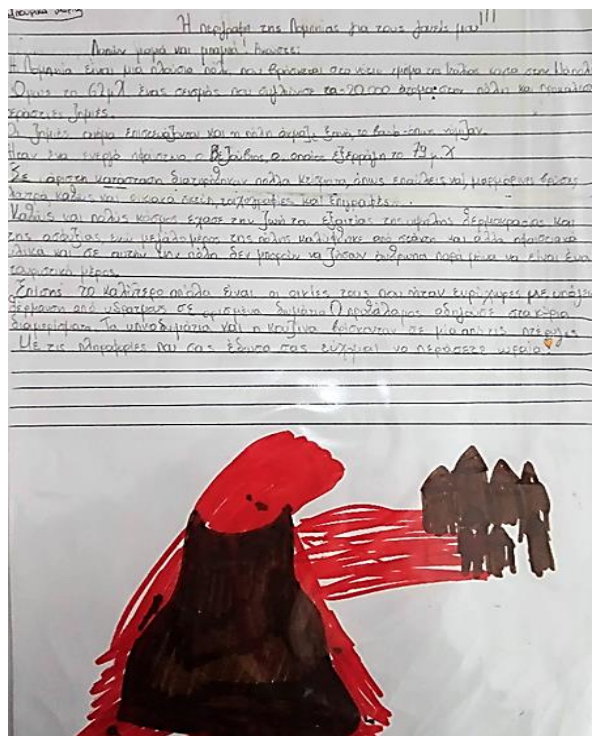 Η περιγραφή της Πομπηίας για τους γονείς μου!!!
μαμά και μπαμπά! Ακούστε:
Η Πομπηία είναι μια πλούσια πόλη που βρίσκεται στο νότιο τμήμα της Ιταλίας κοντά στην Νάπολη
Όμως το 62μ.Χ ένας σεισμός που 20.000 άτομα στην πόλη και προκάλεσε
τεράστιες ζημιές.
Οι ζημιές ακόμα επισκευάζονται και η πόλη ξανά, το
Ήταν ένα ενεργό ηφαίστειο, ο Βεζούβιος, ο οποίος εξερράγη το 79 μ.Χ
Σε άριστη κατάσταση διατηρήθηκαν πολλά κτίσματα, όπως επαύλεις ναοί, μαρμάρινες βρύσες
καθώς και οικιακά σκεύη, τοιχογραφίες και επιγραφές.
Καθώς και πολύς κόσμος έχασε την ζωή του εξαιτίας της υψηλής θερμοκρασίας και
της ασφυξίας, ενώ μεγάλο μέρος της πόλης καλύφθηκε από στάχτη και άλλα ηφαιστειακά
υλικά και σε αυτήν την πόλη δεν μπορούν να ζήσουν άνθρωποι παρά μόνο να είναι ένα
τουριστικό μέρος.
Επίσης το καλύτερο απ'όλα είναι οι οικίες τους που ήταν ευρύχωρες με
θέρμανση από υδρατμούς σε ορισμένα δωμάτια Ο προθάλαμος οδηγούσε στα κύρια
διαμερίσματα. Τα υπνοδωμάτια και η κουζίνα βρίσκονταν σε μία από τις πτέρυγες
Με τις πληροφορίες που σας έδωσα σας εύχομαι να περάσετε ωραία!